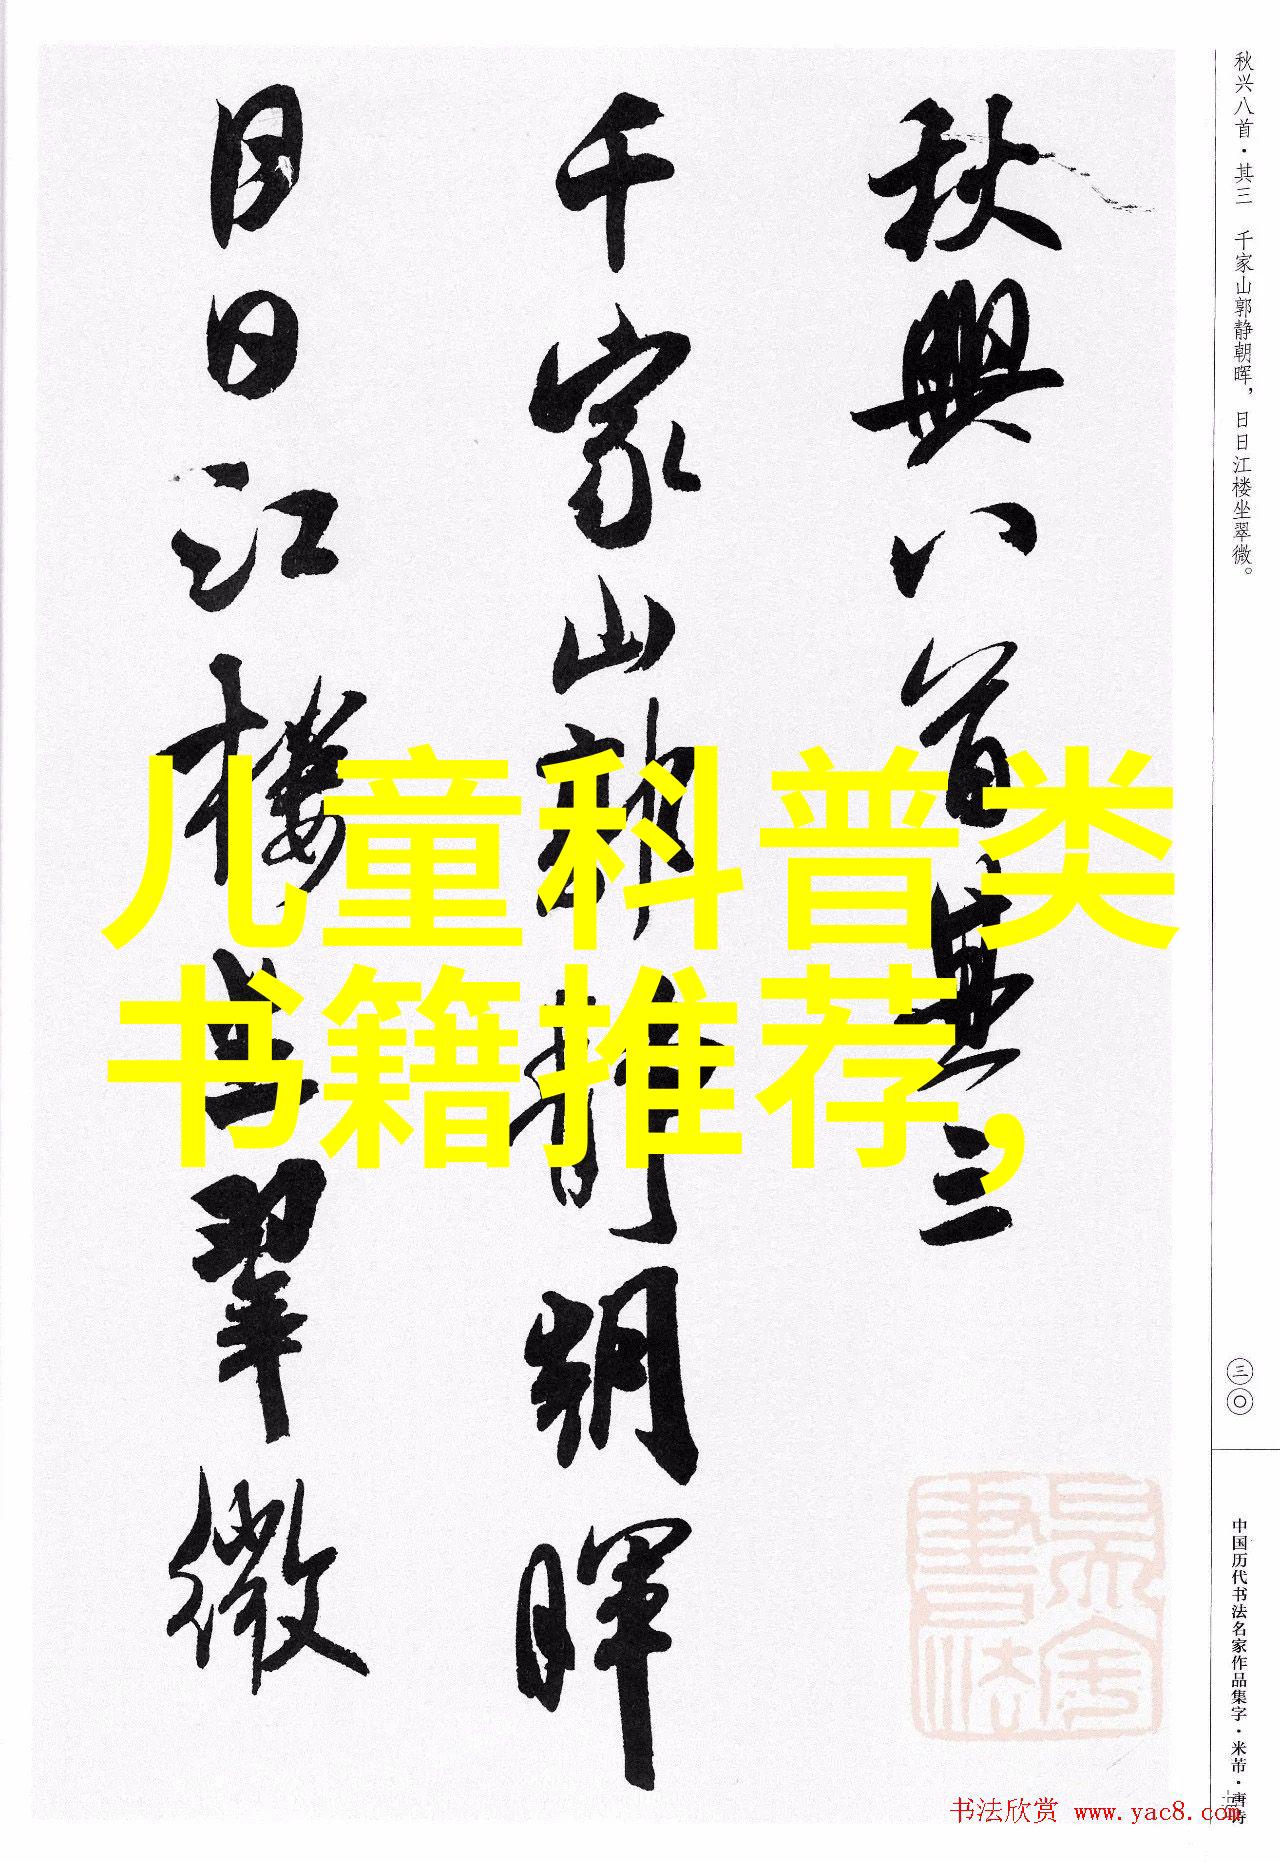 秋兴八首·其三 千家山郭静朝晖，日日江楼坐翠微。
秋興八首其三
千家山郭静朝暉
日日江樓坐翠微
儿童科普类
书籍推荐，
三〇
中国历代书法名家作品集字·米芾·唐诗
书法欣赏 www.yac8.com